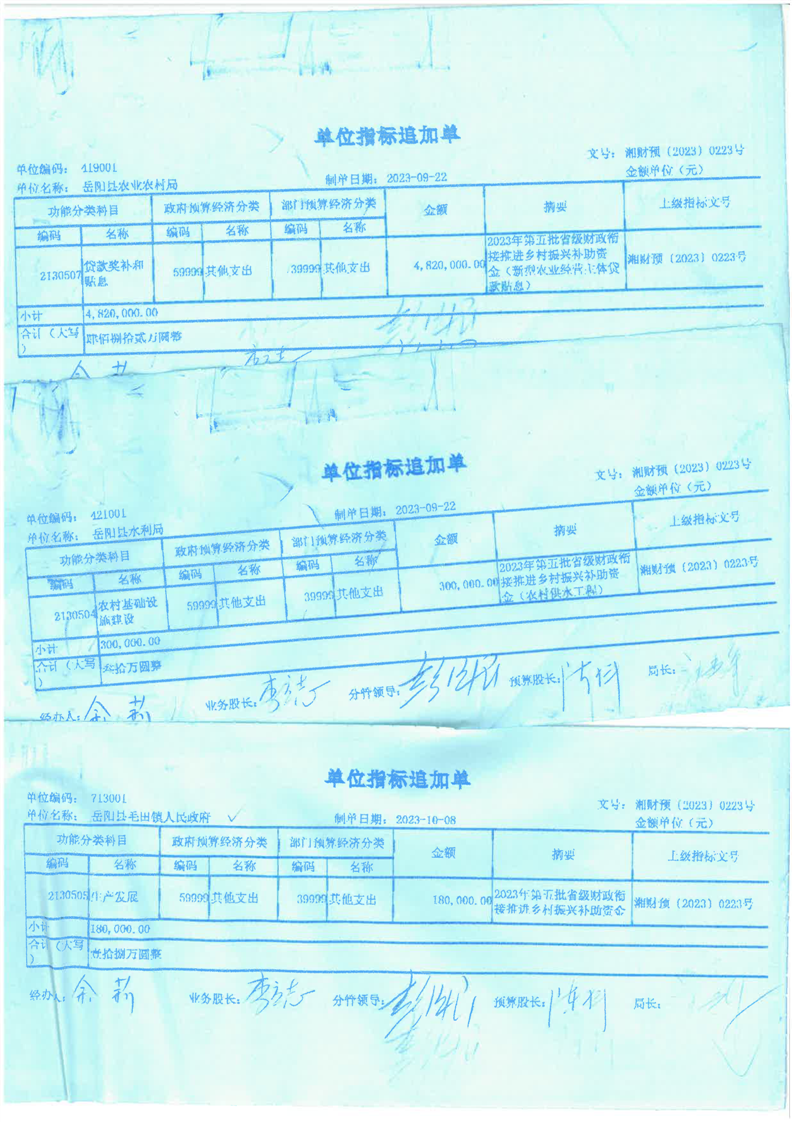 单位指标追加单
文号: 湘财预〔2023〕0223号
单位编码: 419001
制单日期: 2023-09-22
金额单位（元）
单位名称: 岳阳县农业农村局
功能分类科目 政府预算经济分类 部门预算经济分类 金额 摘要 上级指标文号
编码 名称 编码 名称 编码 名称
2130507 贷款奖补和贴息 59999 其他支出 39999 其他支出 4,820,000.00 2023年第五批省级财政衔接推进乡村振兴补助资金（新型农业经营主体贷款贴息） 湘财预〔2023〕0223号
小计 4,820,000.00
合计（大写） 肆佰捌拾贰万圆整
余莉
单位指标追加单
文号: 湘财预〔2023〕0223号
单位编码: 421001
制单日期: 2023-09-22
金额单位（元）
单位名称: 岳阳县水利局
功能分类科目 政府预算经济分类 部门预算经济分类 金额 摘要 上级指标文号
编码 名称 编码 名称 编码 名称
2130504 农村基础设施建设 59999 其他支出 39999 其他支出 300,000.00 2023年第五批省级财政衔接推进乡村振兴补助资金（农村供水工程） 湘财预〔2023〕0223号
小计 300,000.00
合计（大写） 叁拾万圆整
经办人: 余莉 业务股长: 李立志 分管领导: 预算股长: 局长:
单位指标追加单
单位编码: 713001
文号: 湘财预〔2023〕0223号
单位名称: 岳阳县毛田镇人民政府
制单日期: 2023-10-08
金额单位（元）
功能分类科目 政府预算经济分类 部门预算经济分类 金额 摘要 上级指标文号
编码 名称 编码 名称 编码 名称
2130505 生产发展 59999 其他支出 39999 其他支出 180,000.00 2023年第五批省级财政衔接推进乡村振兴补助资金 湘财预〔2023〕0223号
小计 180,000.00
合计（大写） 壹拾捌万圆整
经办人: 余莉 业务股长: 李立志 分管领导: 预算股长: 局长: